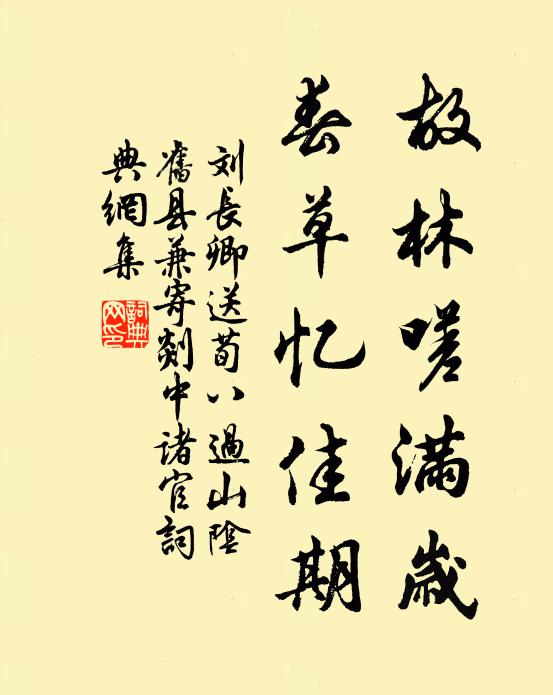 故林嗟满岁
春草忆佳期
刘長卿送荀八過山陰
舊县兼寄剡中诸官詞
典網集
詞典
网印